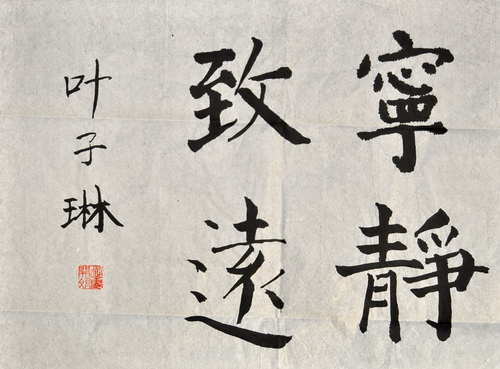 寧靜
致遠
叶子琳